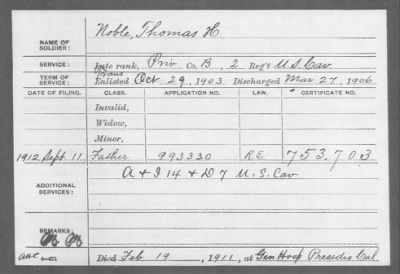 NAME OF SOLDIER: Noble, Thomas H.
SERVICE: Late rank, Priv Co. B, 2 Reg't U.S. Cav.
TERM OF SERVICE: Enlisted Oct. 29, 1903. Discharged Mar 27, 1906.
DATE OF FILING. CLASS. APPLICATION NO. LAW. CERTIFICATE NO.
Invalid,
Widow,
Minor,
1912 Sept. 11 Father 993330 R.E. 753,703
ADDITIONAL SERVICES: A & I 14 & D 7 U.S. Cav
REMARKS:
Died Feb 19, 1911, at Gen Hosp Presidio Cal